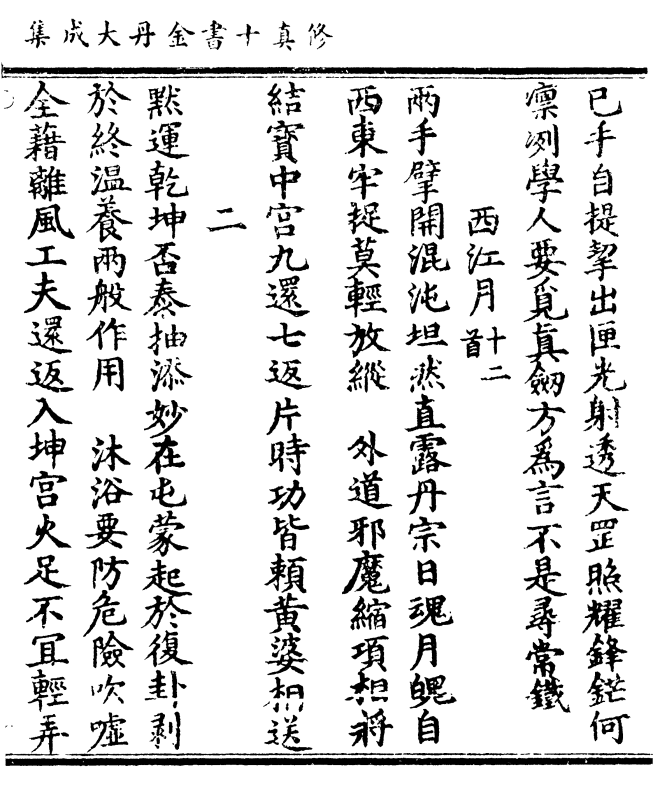 修真十書金丹大成集
已手自提挈出匣光射透天罡照耀鋒鋩何
凜冽學人要覓真劒方為言不是尋常鐵
西江月十二首
兩手擘開混沌坦然直露丹宗日魂月魄自
西東牢捉莫輕放縱　外道邪魔縮項想將
結寶中宮九還七返片時功皆賴黃婆相送
二
默運乾坤否泰抽添妙在屯蒙起於復卦剥
於終溫養兩般作用　沐浴要防危險吹噓
全藉離風工夫還返入坤宮火足不冝輕弄